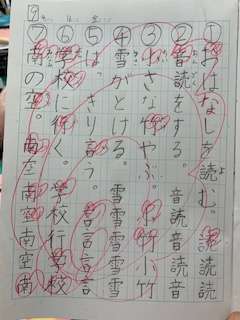 ①おはなしを読む。読読読
②音読をする。音読音読音
③小さな竹やぶ。小竹小竹
④雪がとける。雪雪雪雪雪
⑤はっきり言う。言言言言
⑥学校に行く。学校行学校
⑦南の空。南空南空南空南